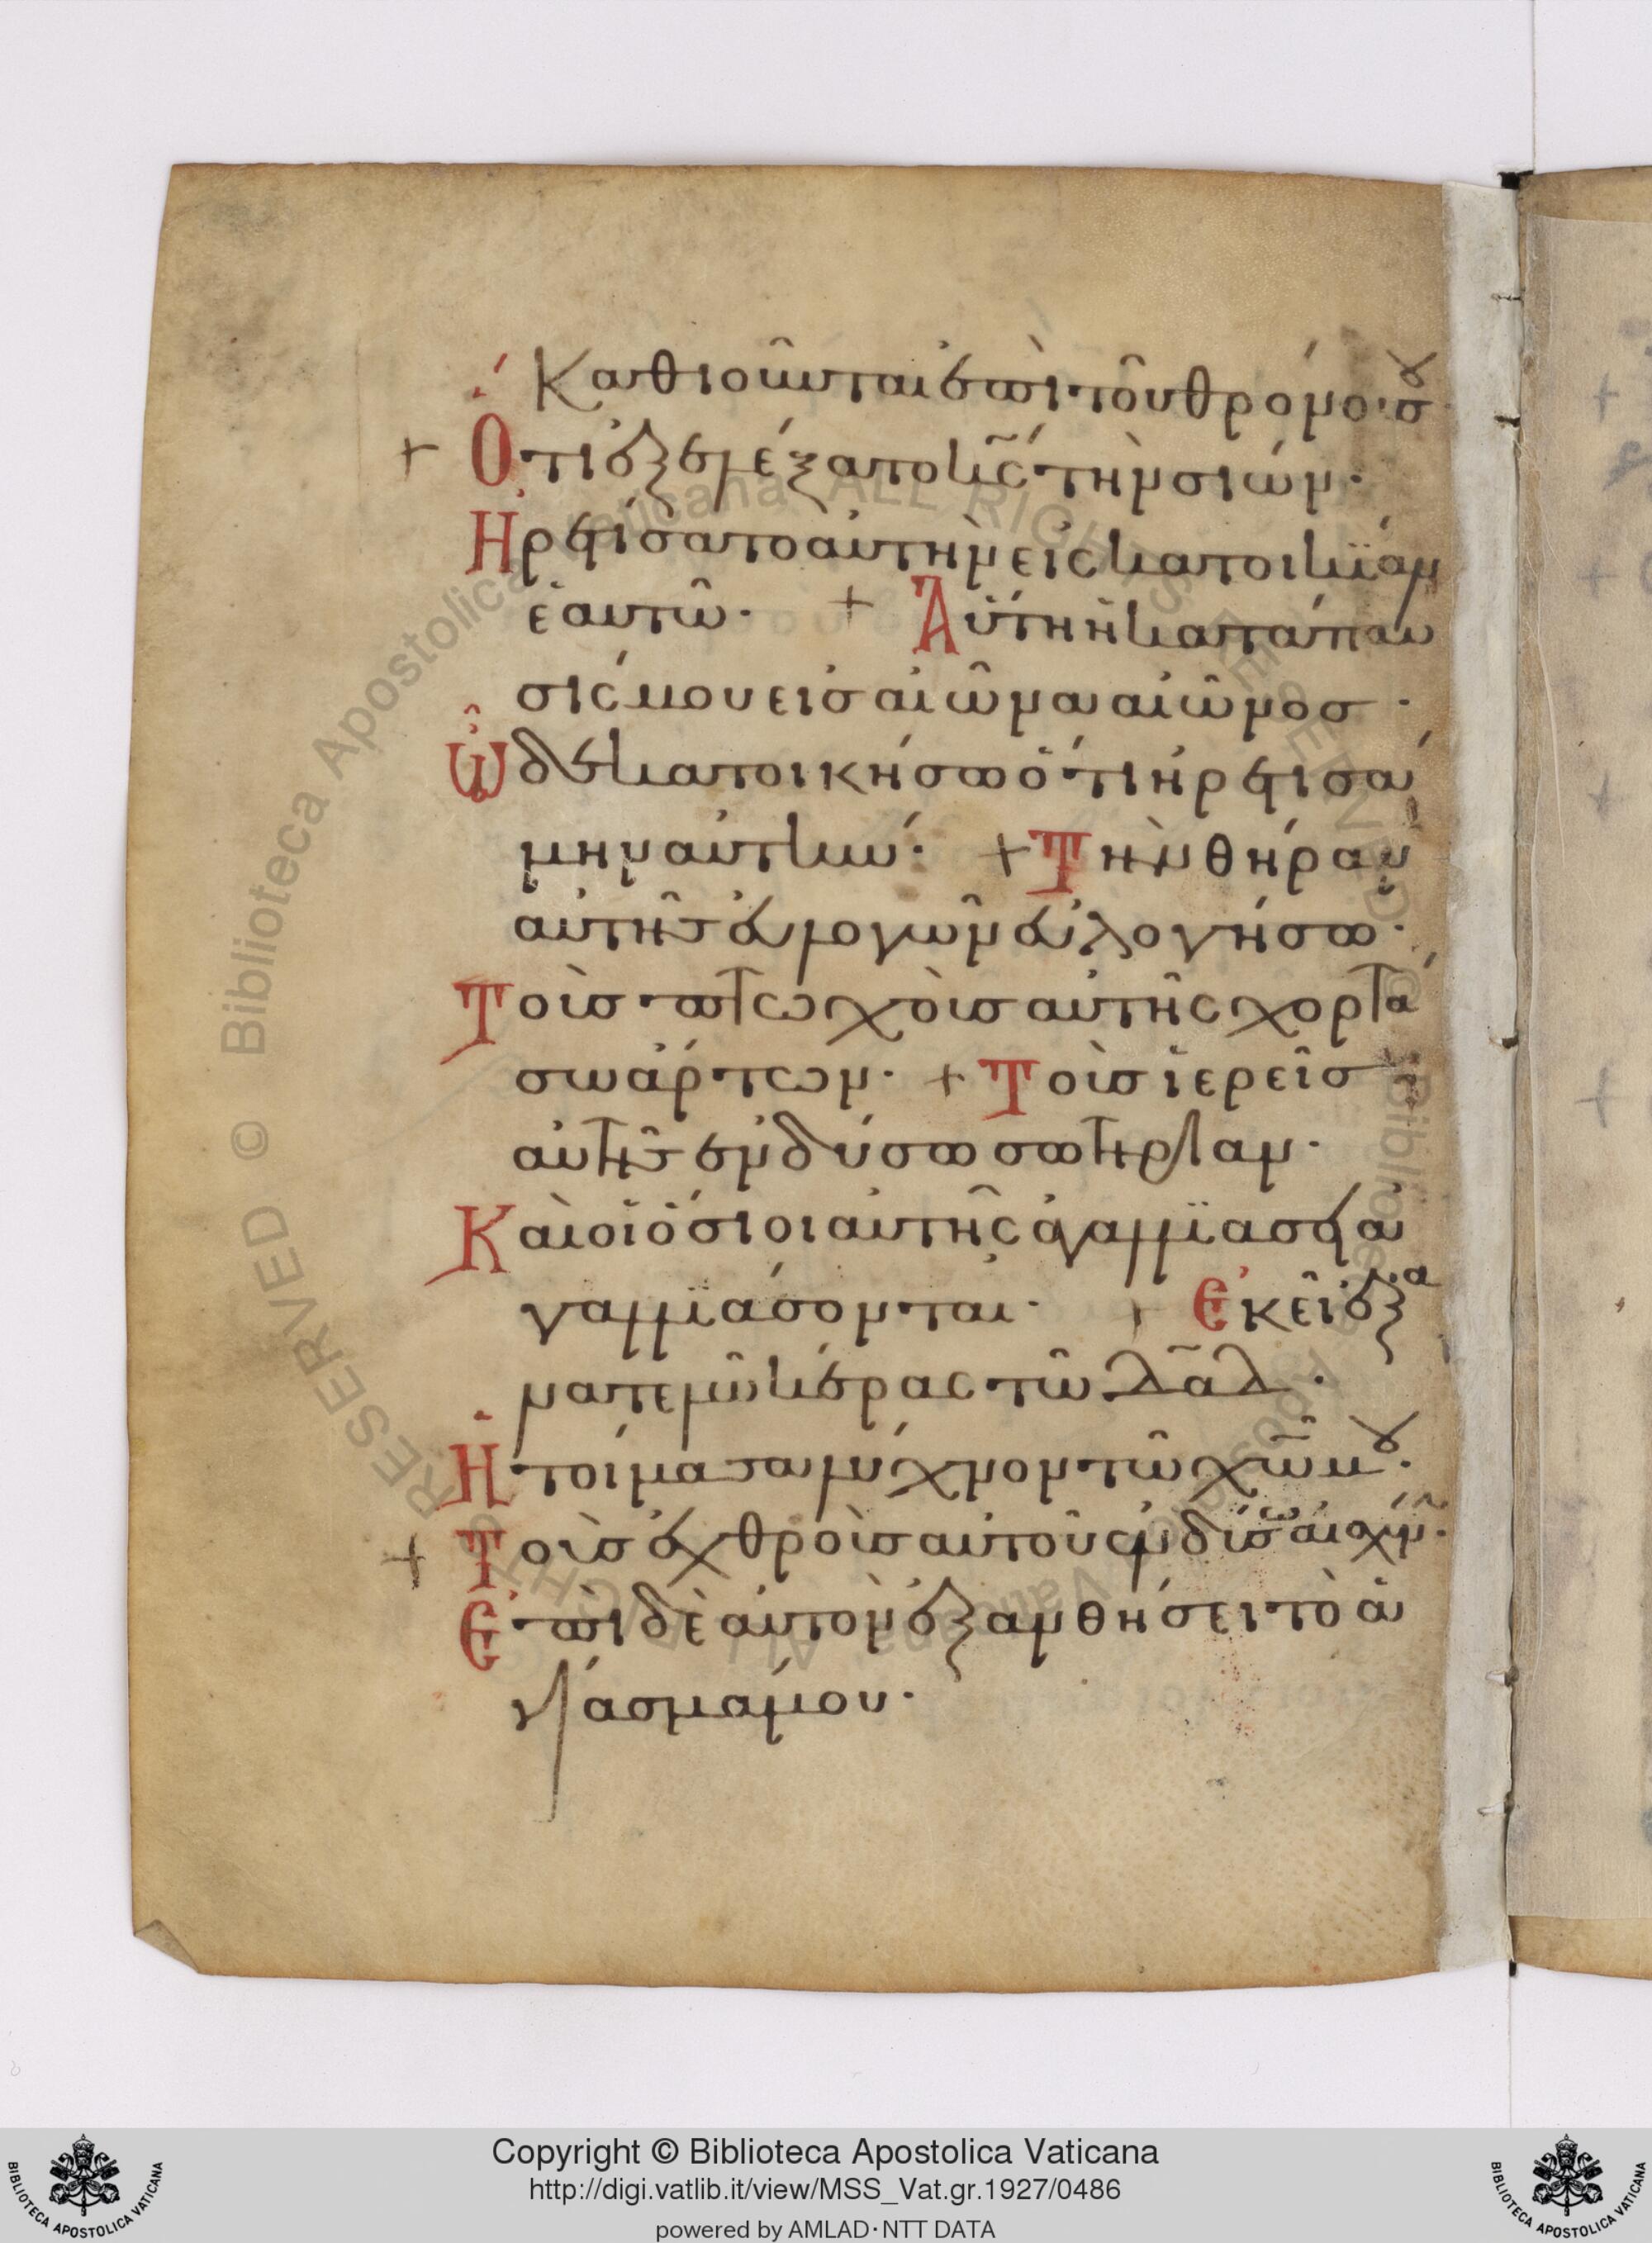 Καθιοῦνται ἐπὶ τοῦ θρόνου σου
Ὅτι ἐξελέξατο κ̅ς̅ τὴν σιών·
Ἡρετίσατο αὐτὴν εἰς κατοικίαν
ἑαυτῶ· + Αὕτη ἡ κατάπαυ
σίς μου εἰσ αἰῶνα αἰῶνοσ·
Ὧδε κατοικήσω ὅτι ἡρετισά
μην αὐτήν· + Τὴν θήραν
αὐτῆσ εὐλογῶν εὐλογήσω·
Τοὺσ πτωχοὺσ αὐτῆς χορτά
σω ἄρτων· + Τοὺσ ἱερεῖσ
αὐτῆσ ἐνδύσω σωτηρίαν·
Καὶ οἱ ὅσιοι αὐτῆς ἀγαλλϊάσει ἀ
γαλλϊάσονται· + Ἐκεῖ ἐξα
νατελῶ κέρας τῶ δ̅α̅δ̅·
Ἡτοίμασα λύχνον τῶ χ̅ω̅ μου·
+ Τοὺσ ἐχθροὺσ αὐτοῦ ἐνδύσω αἰσχύν·
Ἐπὶ δὲ αὐτὸν ἐξανθήσει τὸ ἁ
γίασμά μου·
Copyright © Biblioteca Apostolica Vaticana
http://digi.vatlib.it/view/MSS_Vat.gr.1927/0486
powered by AMLAD·NTT DATA
BIBLIOTECA APOSTOLICA VATICANA
BIBLIOTECA APOSTOLICA VATICANA